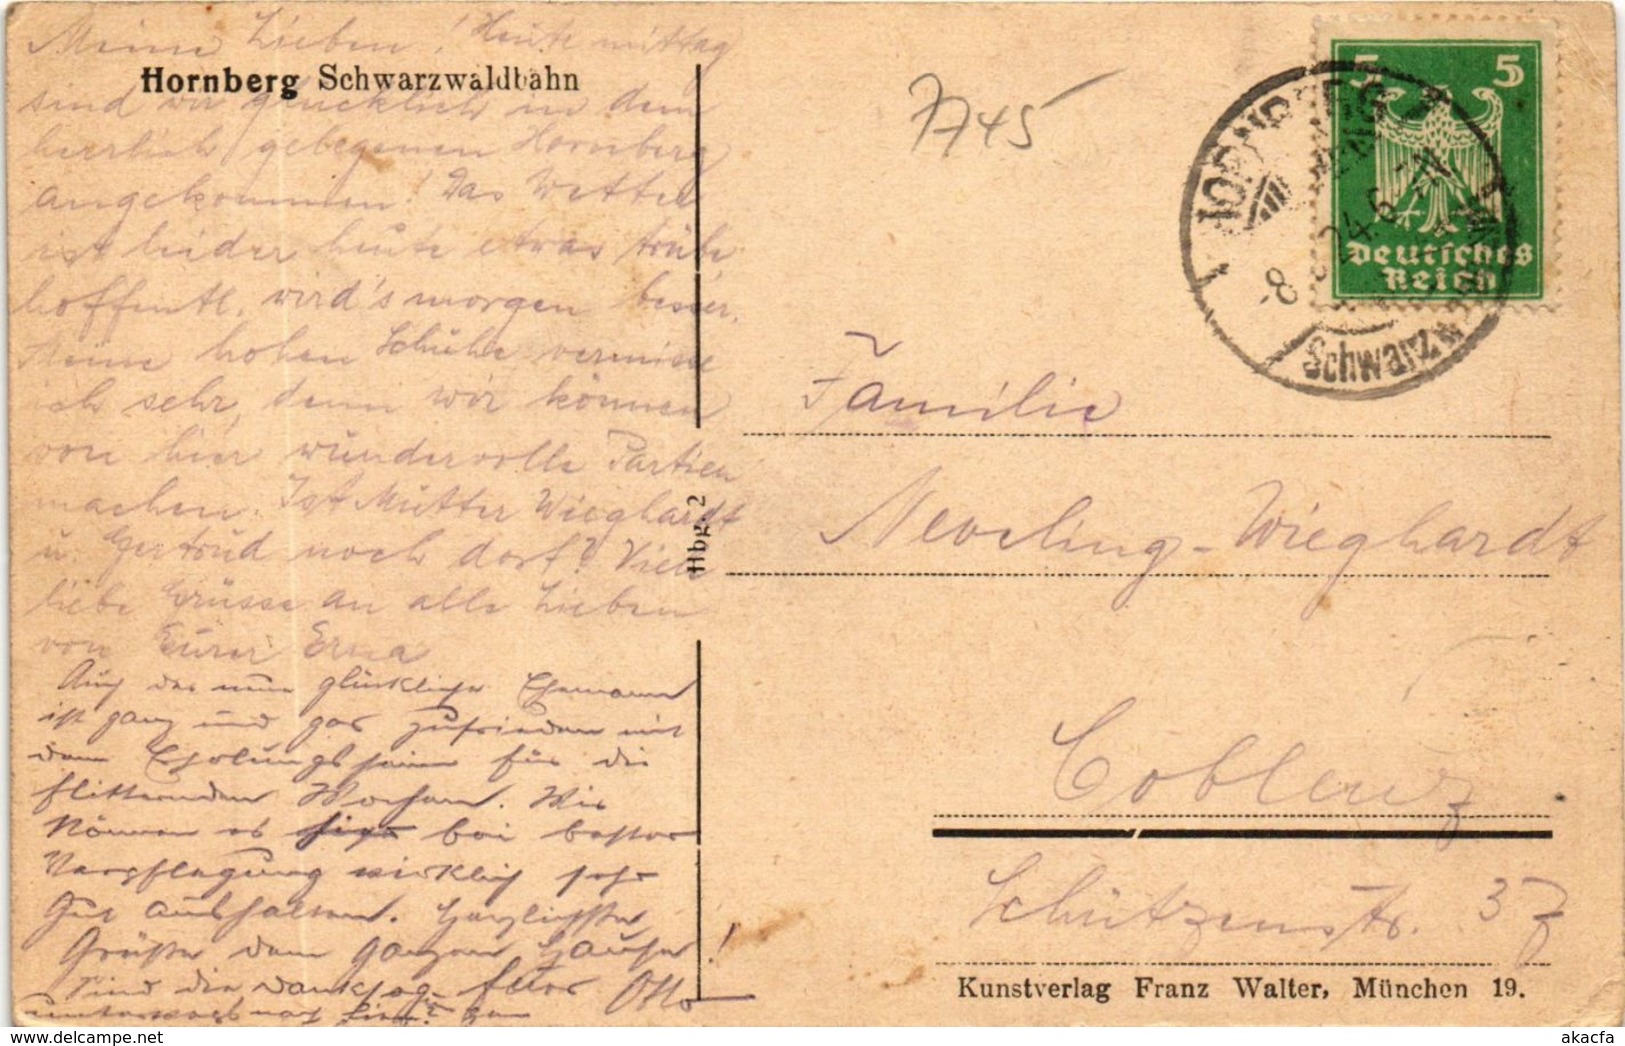 Meine Lieben! Heute mittag
Hornberg Schwarzwaldbahn
sind wir glücklich in dem
herrlich gelegenen Hornberg
angekommen! Das Wetter
ist leider heute etwas trübe
hoffentl. wird's morgen besser.
Meine hohen Schuhe vermisse
ich sehr, denn wir können
von hier wundervolle Partien
machen. Ist Mutter Wieghardt
u. Gertrud noch dort? Viele
liebe Grüsse an alle Lieben
von Eurer Erna
Auch der nun glückliche Ehemann
ist ganz und gar zufrieden mit
dem Erholungsheim für die
flitternden Wochen. Wir
können es hier bei bester
Verpflegung wirklich sehr
gut aushalten. Herzlichste
Grüße dem ganzen Hause!
Sind die Danksag.
unterwegs nach Otto
Hbg. 2
7745
5 5
Deutsches
Reich
HORNBERG
24.6.
8-
Schwarzw
Familie
Neveling-Wieghardt
Coblenz
Schützenstr. 37
Kunstverlag Franz Walter, München 19.
akacfa
www.delcampe.net